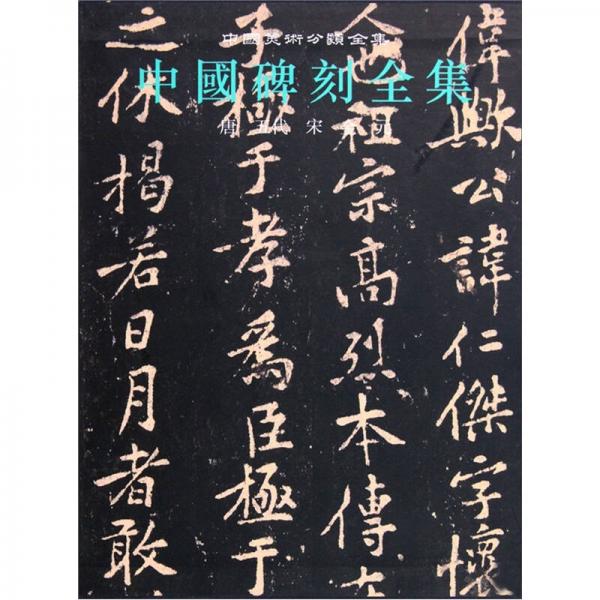 中國美術分類全集
中國碑刻全集
唐 五代 宋 金 元
偉歟公諱仁傑字懷
人也祖宗高烈本傳在
子極于孝爲臣極于
之外揭若日月者敢